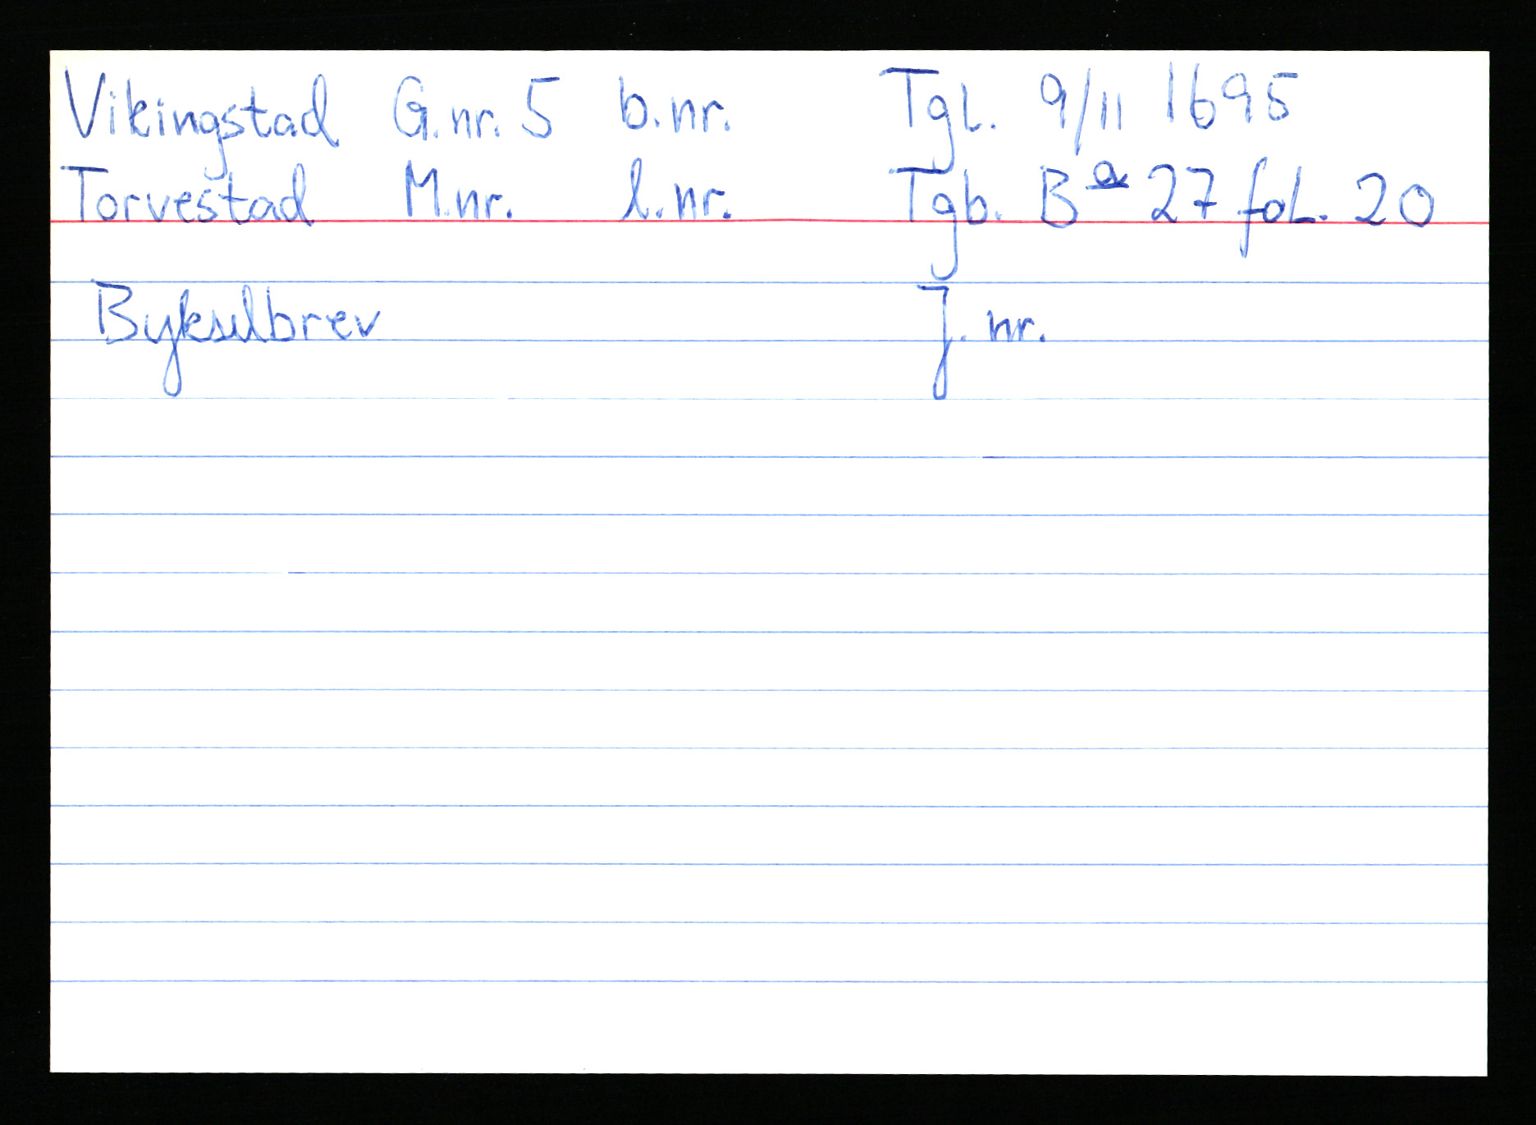 Vikingstad G.nr. 5 b.nr. Tgl. 9/11 1695
Torvestad M.nr. l.nr. Tgb. B 27 fol. 20
Bykselbrev J. nr.